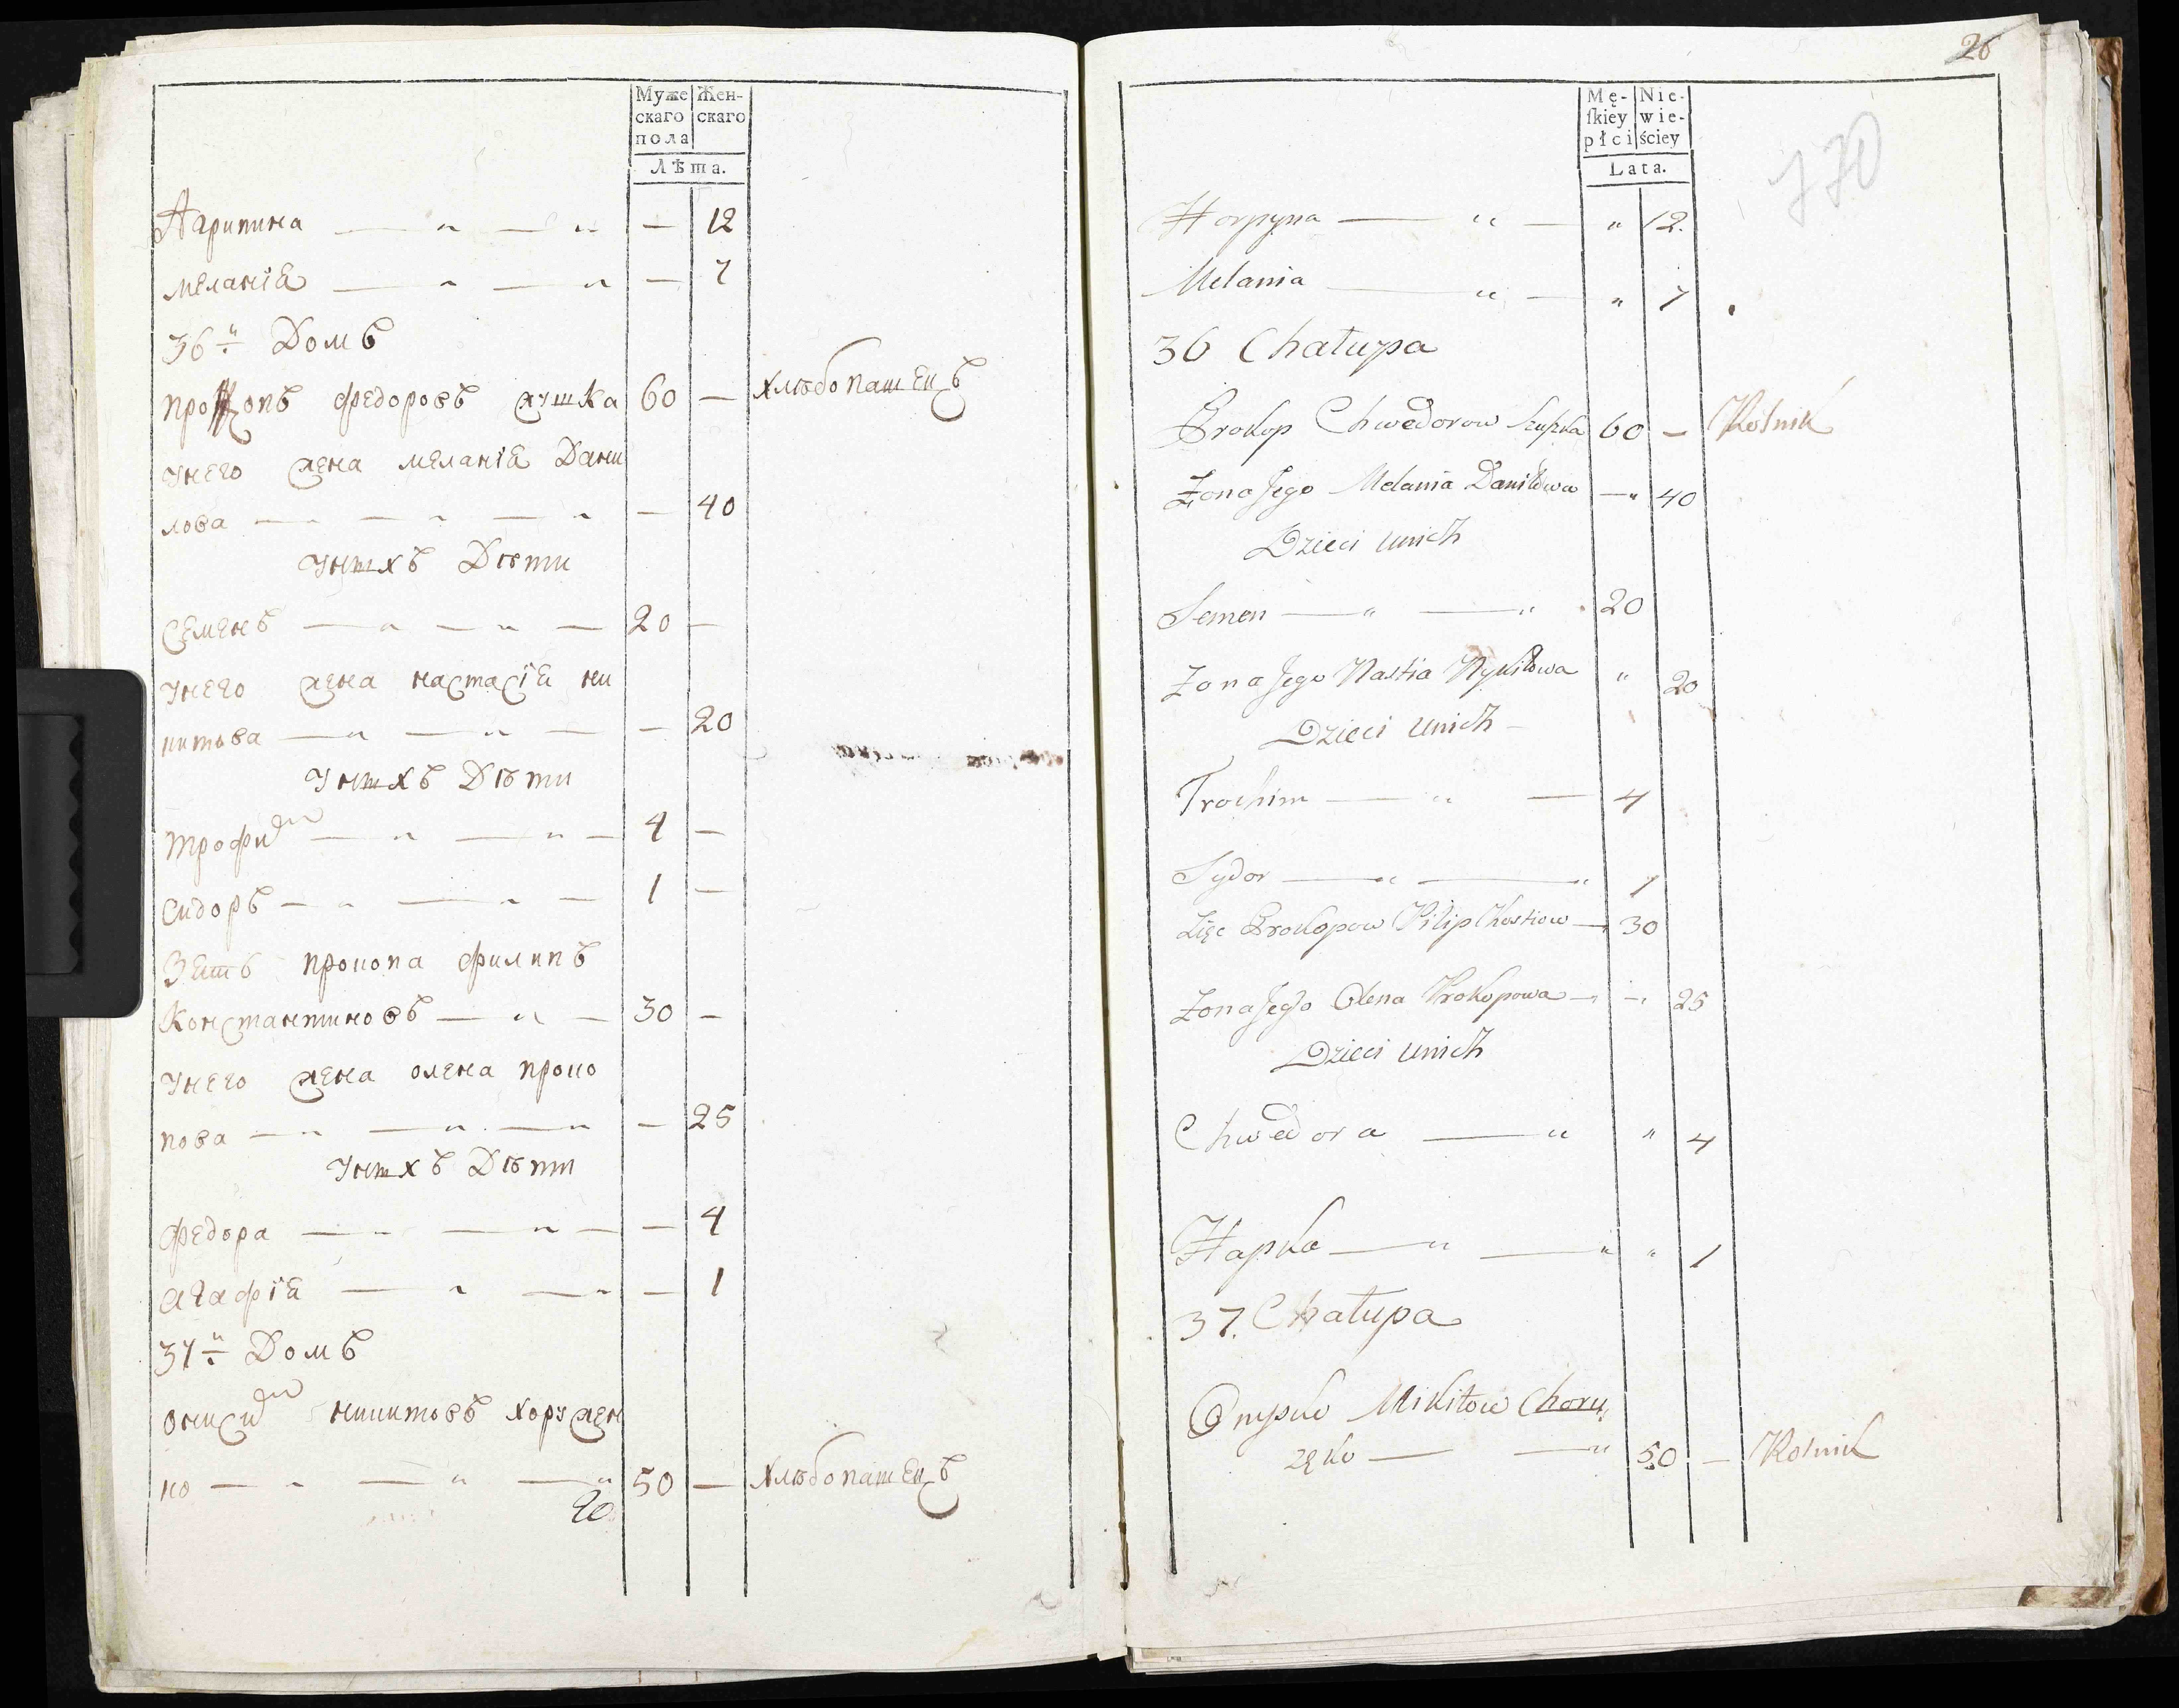 Муже
скаго
пола
Жен-
скаго
Лѣта.
Агрипина — „ — „ — 12
меланіа — „ — „ — 7
36й Домъ
прокопъ федоровъ жушка 60 — хлѣбопашецъ
Унего жена меланіа Дани
лова — „ — „ — „ — 40
Унихъ Дѣти
Семенъ — „ — „ — 20 —
Унего жена настасіа ни
китова — „ — „ — — 20
Унихъ Дѣти
трофим — „ — „ — 4 —
сидоръ — „ — „ — 1 —
Зять прокопа филипъ
Константиновъ — „ — 30 —
Унего жена олена проко
пова — „ — „ — „ — 25
Унихъ Дѣти
федора — „ — „ — — 4
агафіа — „ — „ — 1
37й Домъ
онисим никитовъ хоружен
ко — „ — „ — „ 50 — хлѣбопашецъ
20
26
770
Mę-
ſkiey
płci
Nie-
wie-
ściey
Lata.
Horpyna — „ — „ 12.
Melania — „ — „ 7
36 Chałupa
Prokop Chwedorow 60 — Rolnik
Zona Jego Melania Daniłowa — „ 40
Dzieci unich
Semen — „ — „ 20
Zona Jego Nastia Nykitowa „ 20
Dzieci unich —
Trochim — „ — 4
Sydor — „ — „ 1
Zięc Prokopow Filip Kostiow — 30
Zona Jego Olena Prokopowa — „ — „ 25
Dzieci unich
Chwedora — „ „ 4
Hapka — „ — „ „ 1
37. Chałupa
Onysko Mikitow Choru„
zęko — — „ 50 — Rolnik